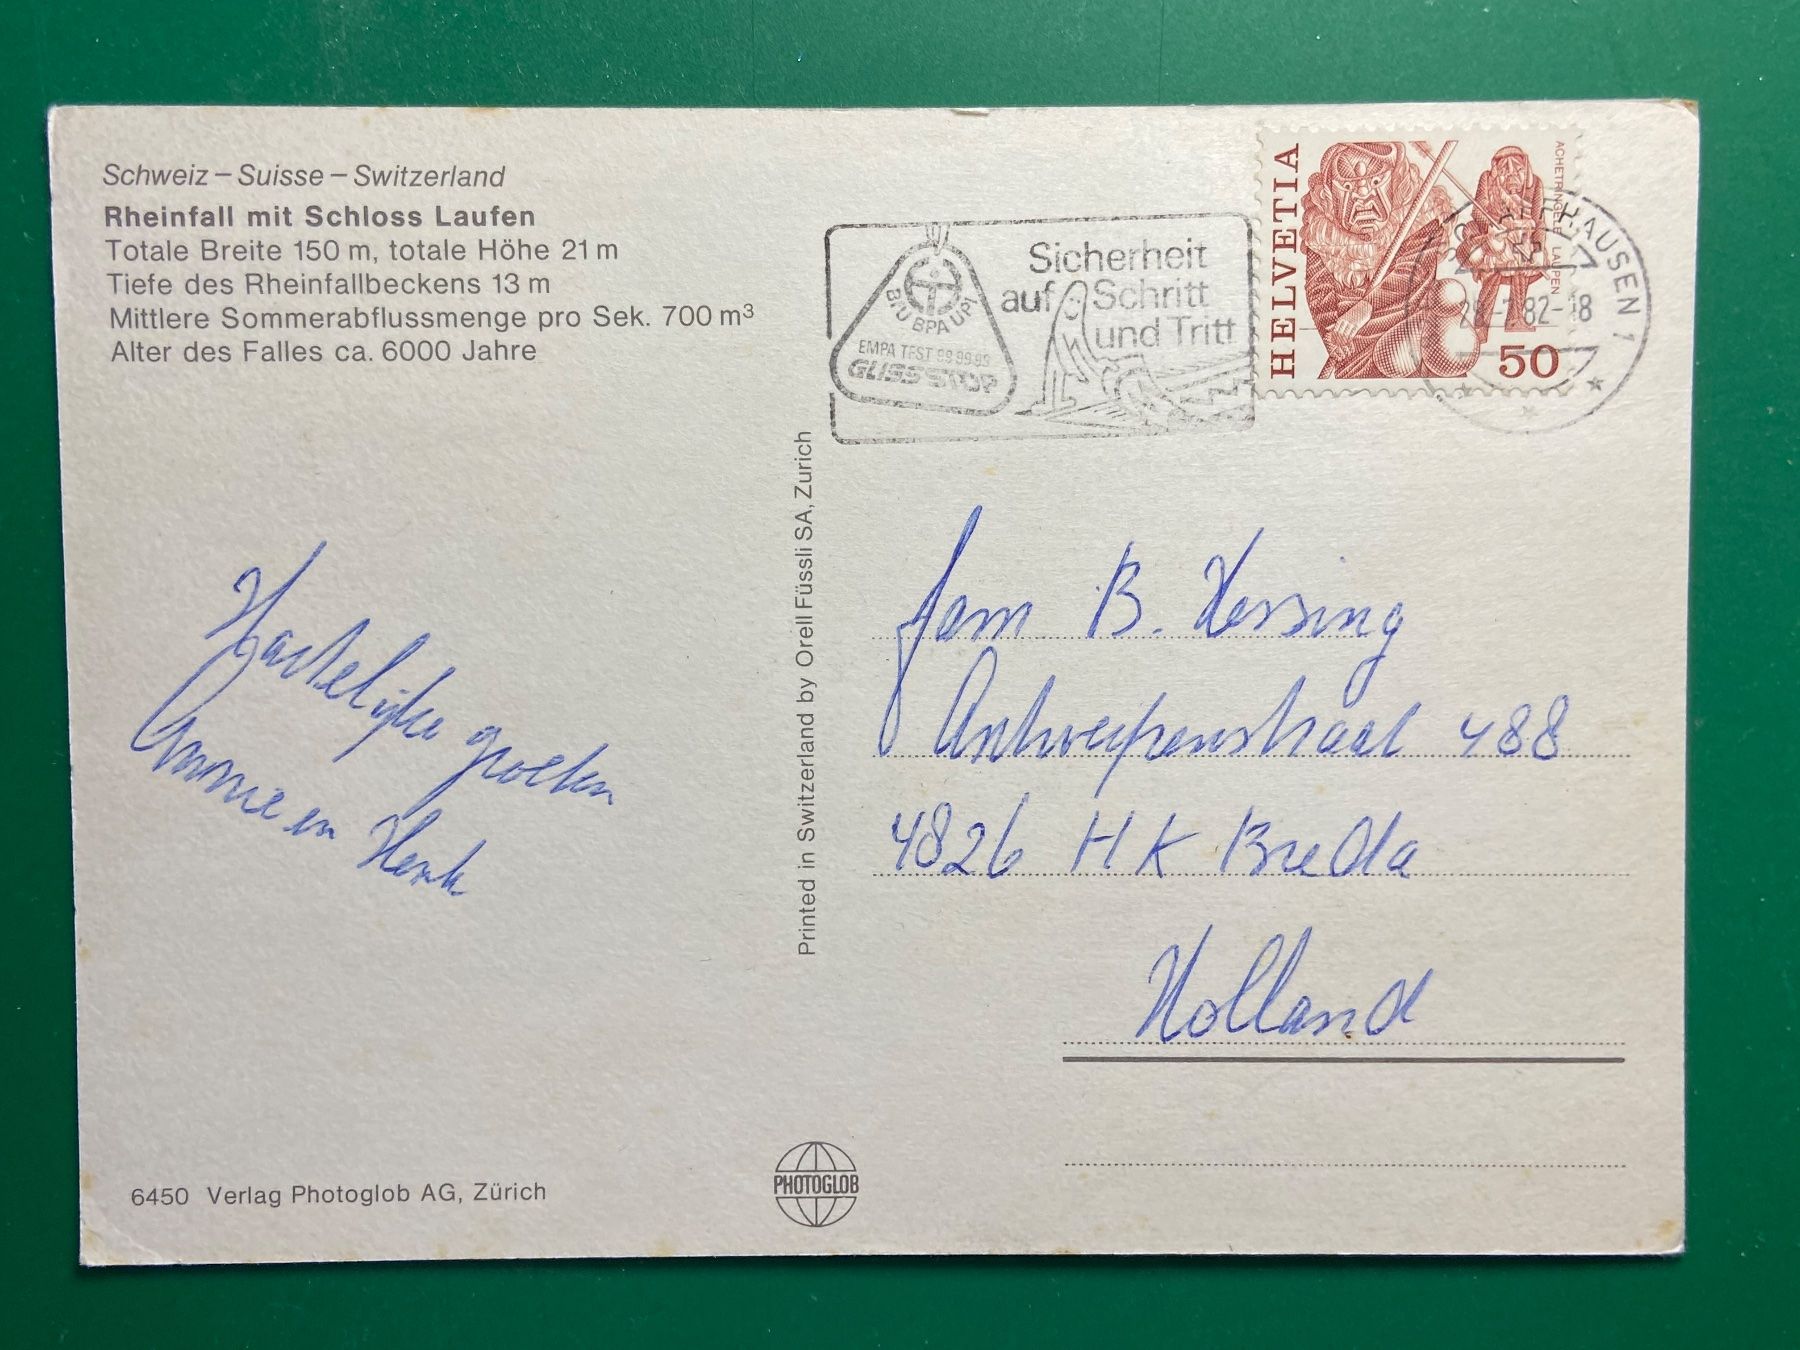 Schweiz – Suisse – Switzerland
Rheinfall mit Schloss Laufen
Totale Breite 150 m, totale Höhe 21 m
Tiefe des Rheinfallbeckens 13 m
Mittlere Sommerabflussmenge pro Sek. 700 m³
Alter des Falles ca. 6000 Jahre
Hartelijke groeten
Annie en Henk
6450 Verlag Photoglob AG, Zürich
Printed in Switzerland by Orell Füssli SA, Zurich
PHOTOGLOB
BfU BPA UPI
EMPA TEST 99.99.99
GLISS STOP
Sicherheit
auf Schritt
und Tritt
HELVETIA
ACHETRINGELE LAUPEN
50
HAUSEN 1
82-18
Fam B. Hessing
Antwerpenstraat 488
4826 HK Breda
Holland